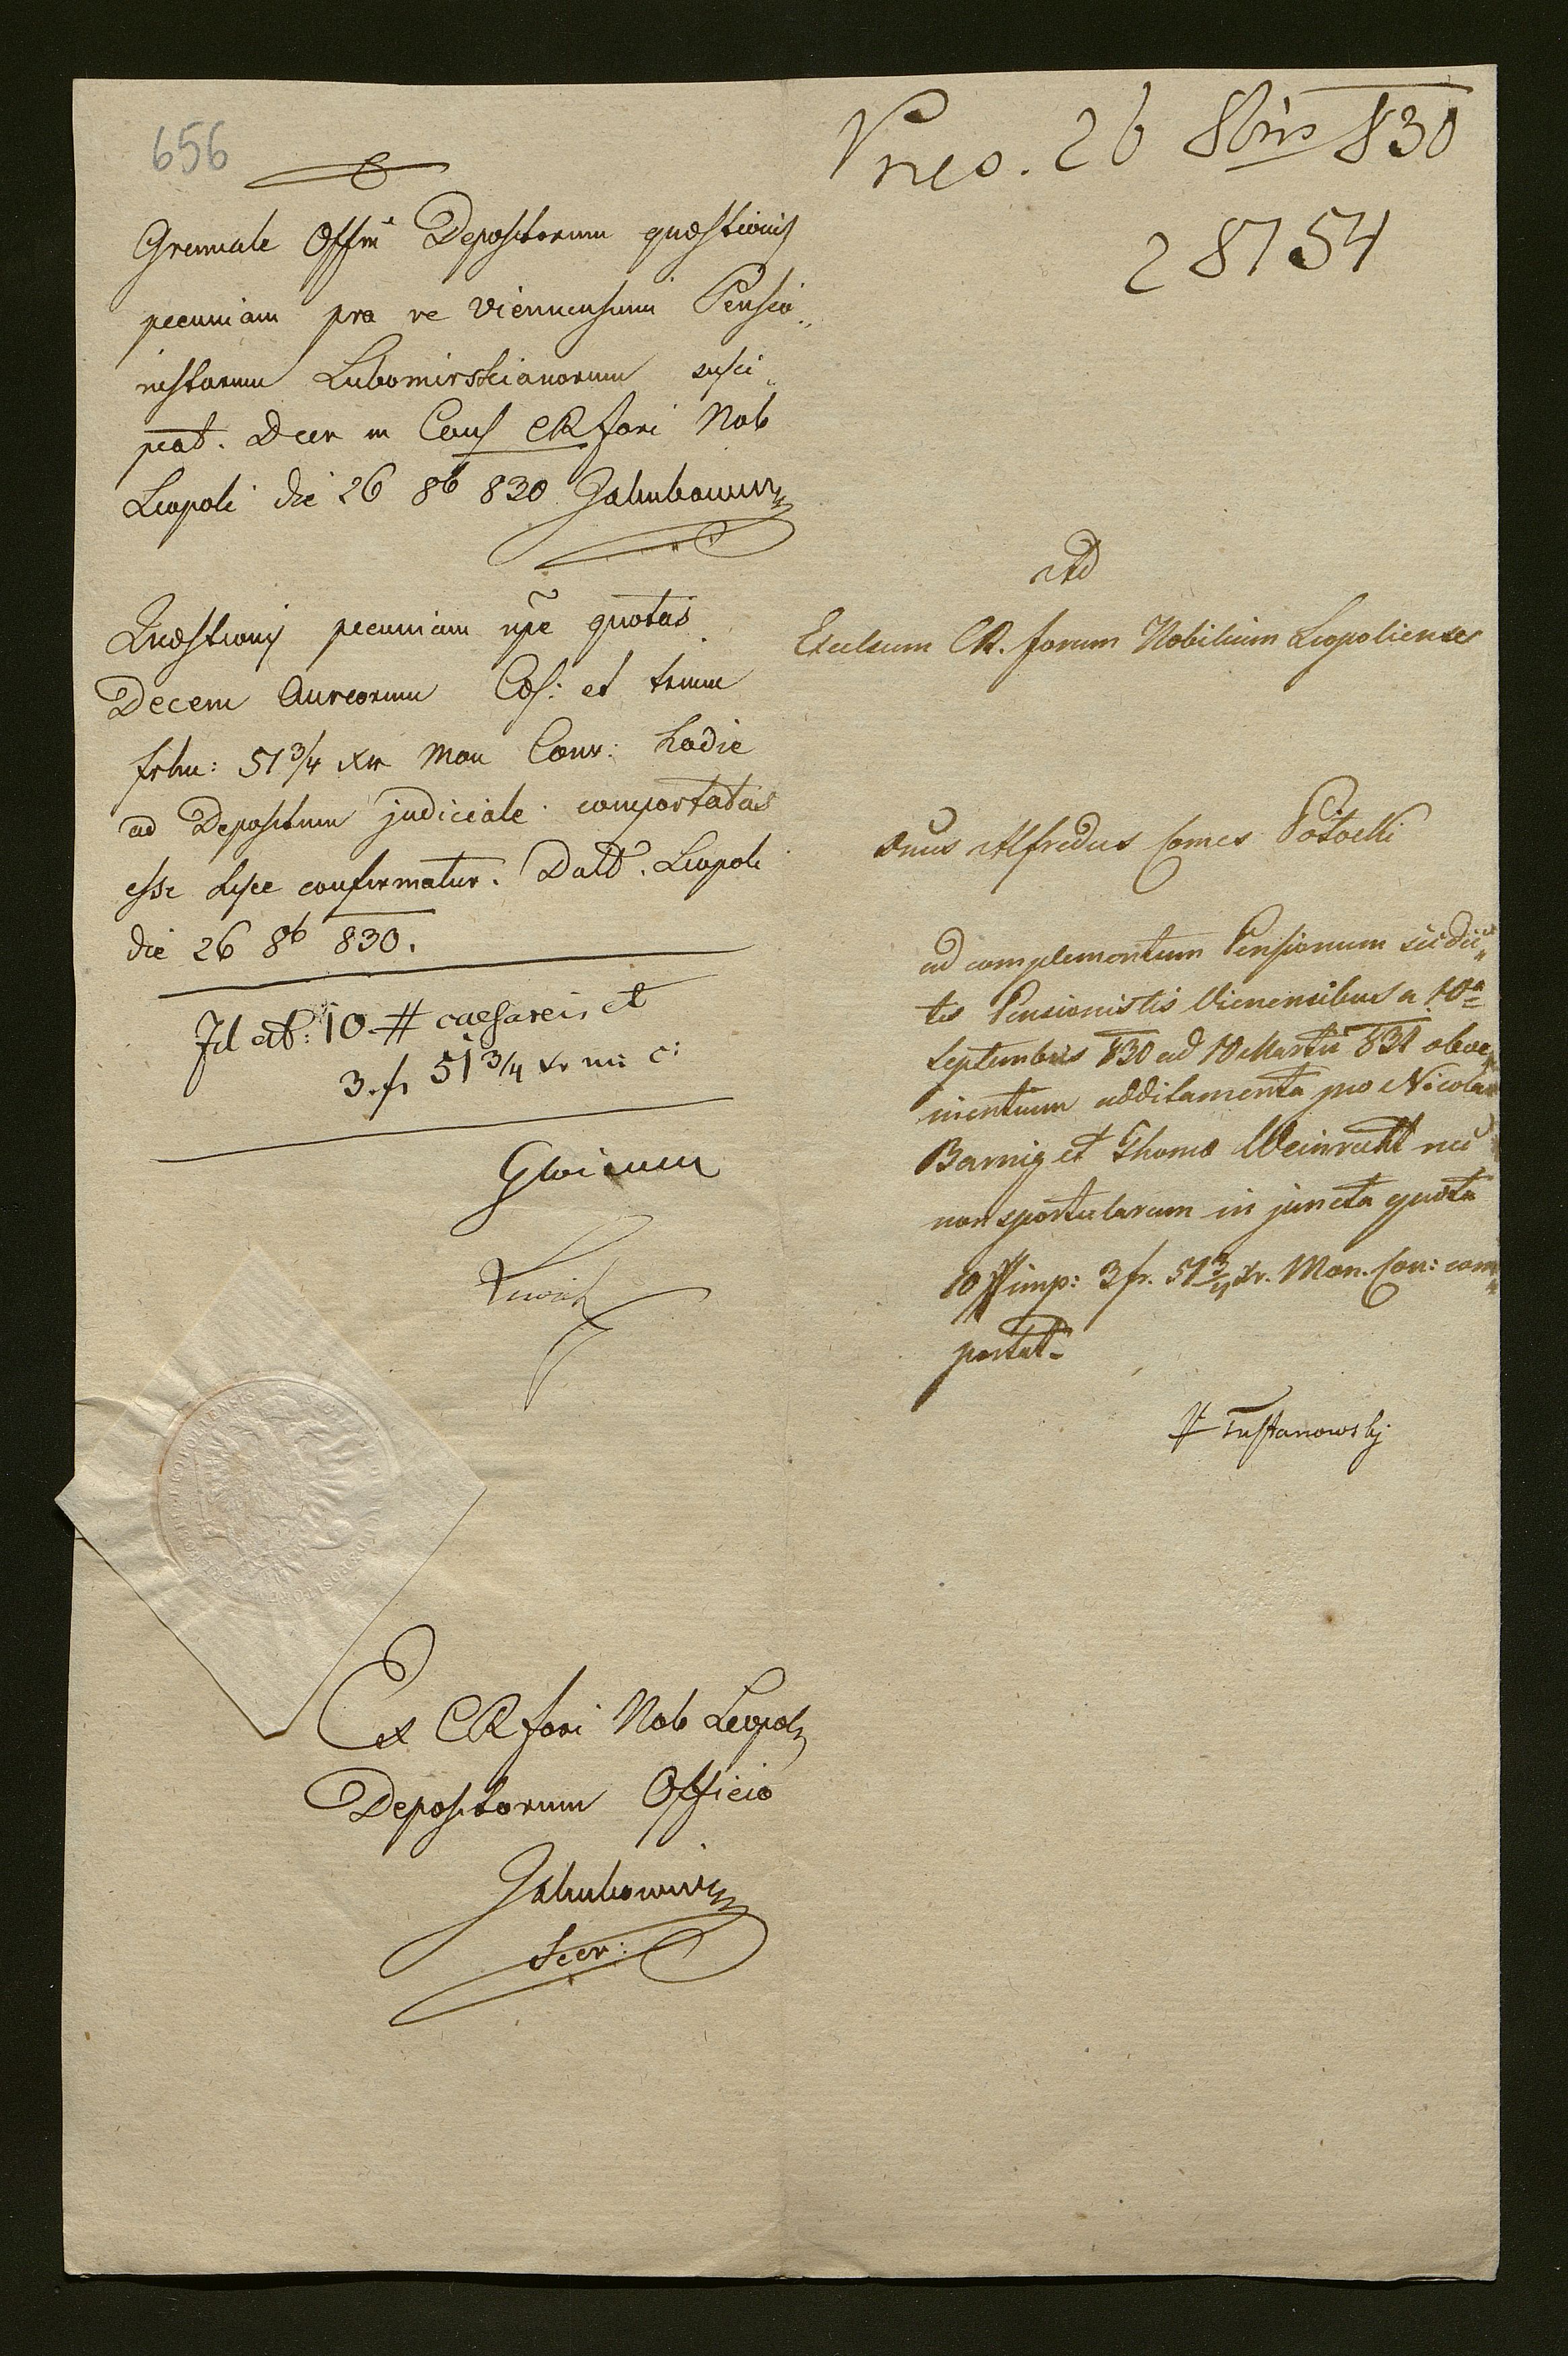 656
Gremiale Offm Depositorum quæstionis
pecuniam pra re Viennensium Pensio„
nistarum Lubomirskianorum susci„
piat. Decr in Cons CR fori Nob
Leopoli die 26 8b 830 Jakubowicz
Quæstionis pecuniam npe quotas
Decem Aureorum Cæs: et trium
frhn: 51 3/4 xr Mon Conv: hodie
ad Depositum judiciale comportatas
esse hisce confirmatur. Datt. Leopoli
die 26 8b 830.
Id est: 10 # caesarei, et
3 fr 51 3/4 xr m: c:
Ex CR fori Nob Leopol
Depositorum Officio
Jakubowicz
Secr:
Præs. 26 8bris 830
28754
Ad
Excelsum CR. forum Nobilium Leopoliense
Dnus Alfredus Comes Potocki
ad complementum Pensionum sic dic„
tis Pensionistis Vienensibus a 10a
Septembris 830 ad 10 Martii 831 obve„
nientium additamenta pro Nicolao
Barnig et Thoma Weinricht nec
non sportularum in juncta quota
10 # imp: 3 fr. 51 3/4 xr. Mon. Con: com„
portat.
Tustanowsky